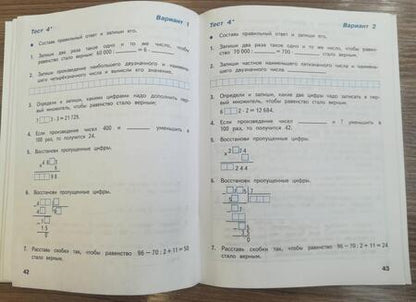 Тест 4*
Вариант 1
Составь правильный ответ и запиши его.
1. Запиши два раза такое одно и то же число, чтобы
равенство стало верным: 60 000 : = 6
2. Запиши произведение наибольшего двузначного и наимень-
шего четырёхзначного числа и запиши его значение.
3. Определи и запиши, какими цифрами надо дополнить пер-
вый множитель, чтобы равенство стало верным:
4. Если произведение чисел 400 и уменьшить в
100 раз, то получится 24.
5. Восстанови пропущенные цифры.
6. Восстанови пропущенные цифры.
7. Расставь скобки так, чтобы равенство 96 – 70 : 2 + 11 = 50
стало верным.
42
Тест 4*
Вариант 2
Составь правильный ответ и запиши его.
1. Запиши два раза такое одно и то же число, чтобы равен-
ство 70 000 : = 700 стало верным.
2. Запиши частное наименьшего пятизначного числа и наимень-
шего двузначного числа
3. Определи и запиши, какие две цифры надо записать в пер-
вый множитель, чтобы равенство стало верным:
6 2 · 2 = 12 684.
4. Если произведение чисел и 7 уменьшить в
100 раз, то получится 42.
5. Восстанови пропущенные цифры.
6. Восстанови пропущенные цифры.
7. Расставь скобки так, чтобы равенство 96 – 70 : 2 + 11 = 24
стало верным.
43